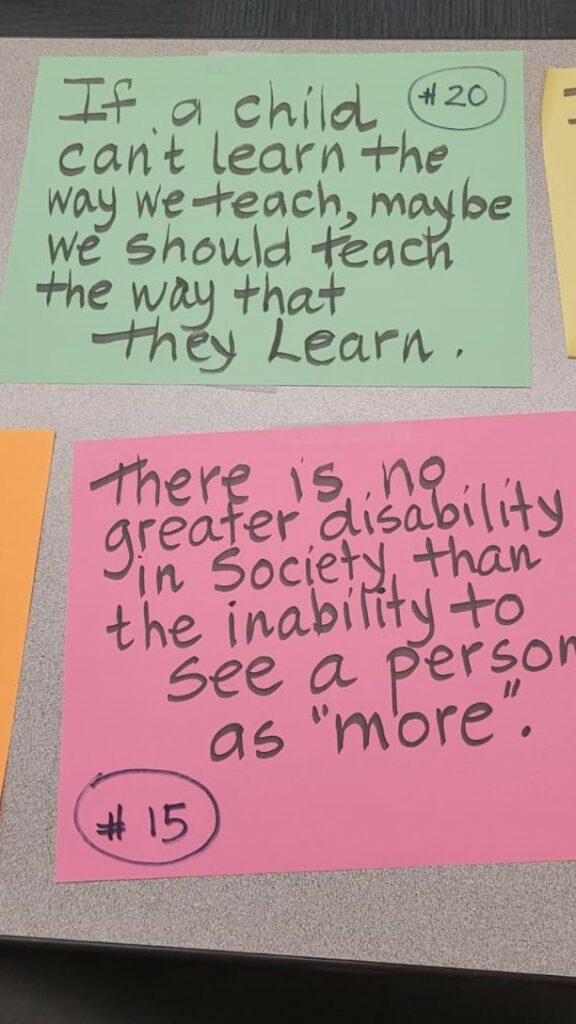 If a child
#20
can't learn the
way we teach, maybe
we should teach
the way that
they Learn.
there is no
greater disability
in Society than
the inability to
see a person
as "more".
#15